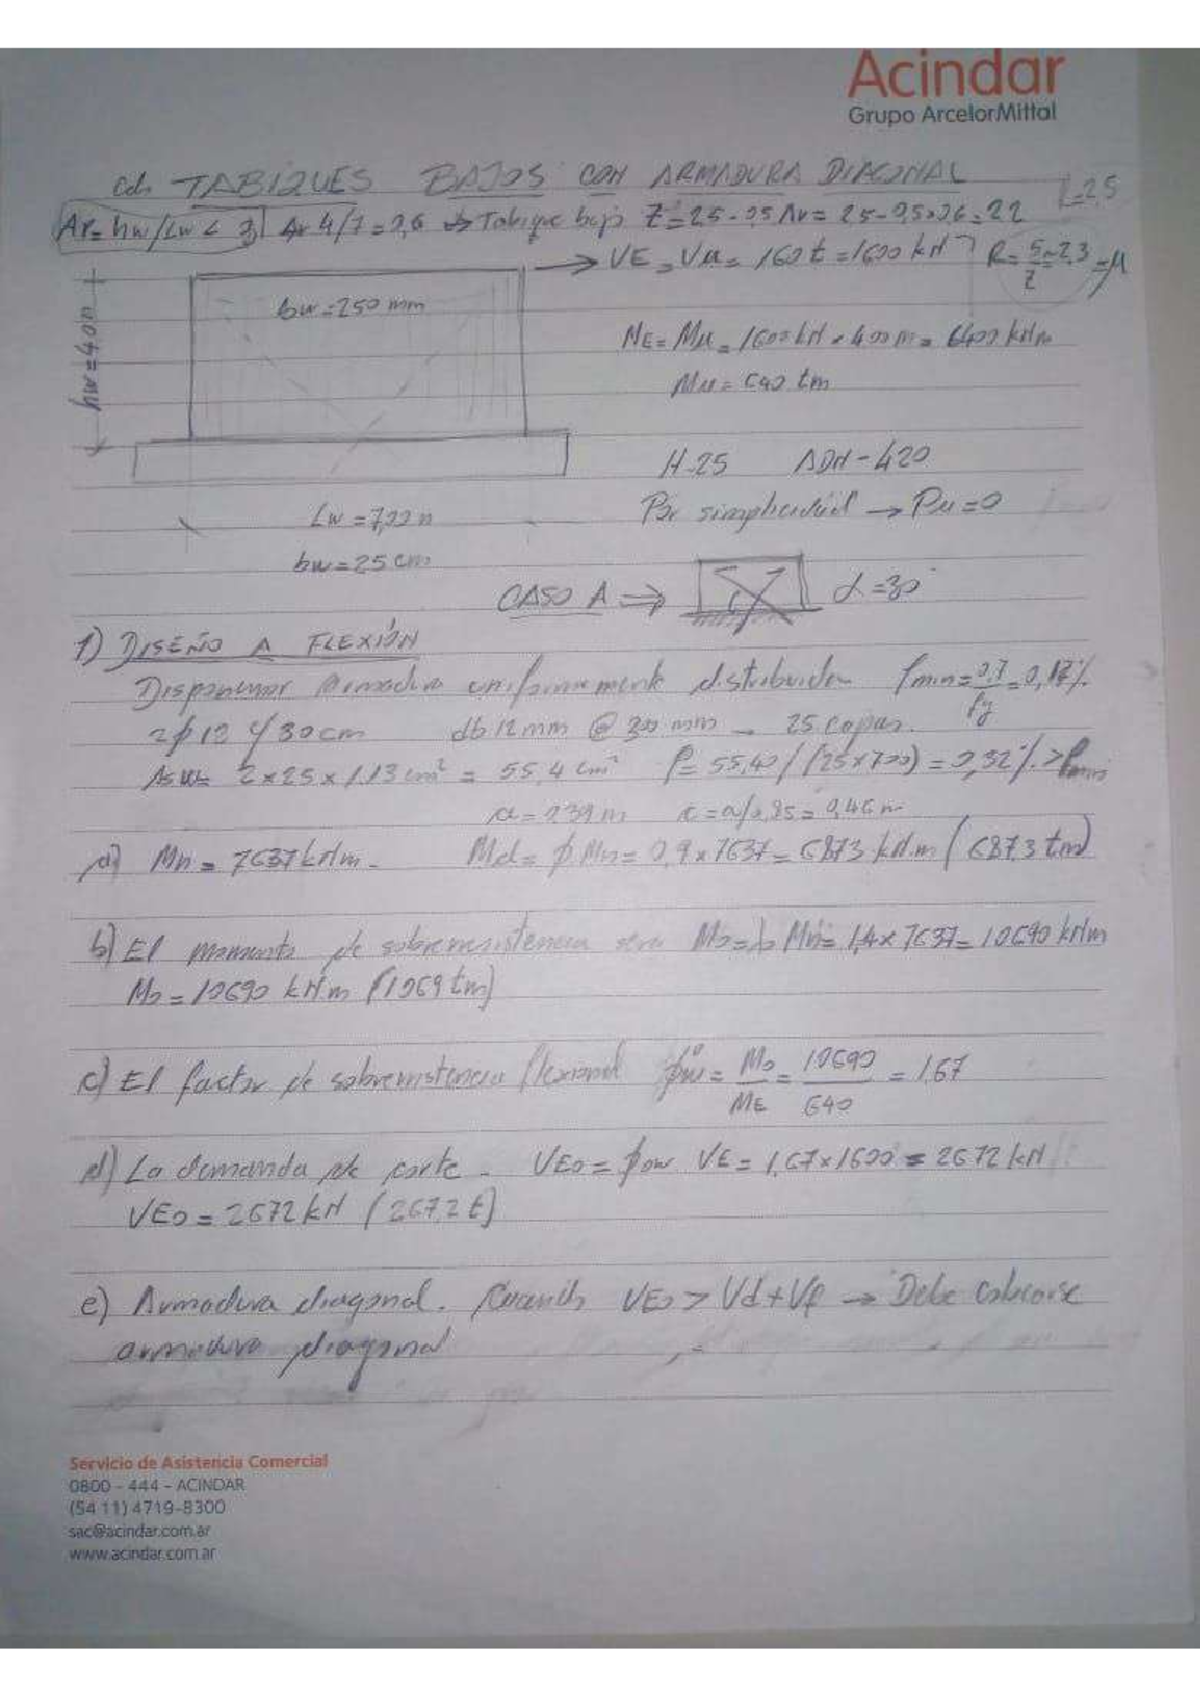 Acindar
Grupo ArcelorMittal
TABIQUES BAJOS CON ARMADURA DIAGONAL
Ar = hw/Lw < 3 Ar 4/7 = 0,6 → Tabique bajo Z = 2.5 - 0,5 Ar = 2.5 - 0,5 × 0.6 = 2.2
→ VE = Vu = 160 t = 1600 kN R = 5/Z = 2,3 = μ
bw = 250 mm
hw = 4.00
ME = Mu = 1600 kN × 4.00 m = 6400 kNm
Mu = 640 tm
H-25 ADN-420
Lw = 7,00 m
Por simplicidad → Pu = 0
bw = 25 cm
CASO A ⇒ α = 30°
1) DISEÑO A FLEXIÓN
Disponemos Armadura uniformemente distribuida ρmin = 0,7/fy = 0,17%
2φ12 c/30cm db 12 mm @ 300 mm → 25 capas.
2 × 25 × 1.13 cm² = 55,4 cm² ρ = 55,40/(25×700) = 0,32% > ρmin
a = 0.39 m c = a/0,85 = 0,46 m
a) Mn = 7637 kNm. Md = φ Mn = 0,9 × 7637 = 6873 kN.m (687.3 tm)
b) El momento de sobrerresistencia será Mo = λ Mn = 1,4 × 7637 = 10690 kNm
Mo = 10690 kN.m (1069 tm)
c) El factor de sobrerresistencia flexional φow = Mo/ME = 10690/640 = 1.67
d) La demanda de corte. VEo = φow VE = 1,67 × 1600 = 2672 kN
VEo = 2672 kN (267,2 t)
e) Armadura diagonal. Cuando VEo > Vd + Vf → Debe colocarse
armadura diagonal
Servicio de Asistencia Comercial
0800 - 444 - ACINDAR
(54 11) 4719-8300
sac@acindar.com.ar
www.acindar.com.ar